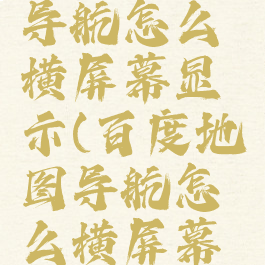 导航怎么
横屏幕显
示(百度地
图导航怎
么横屏幕